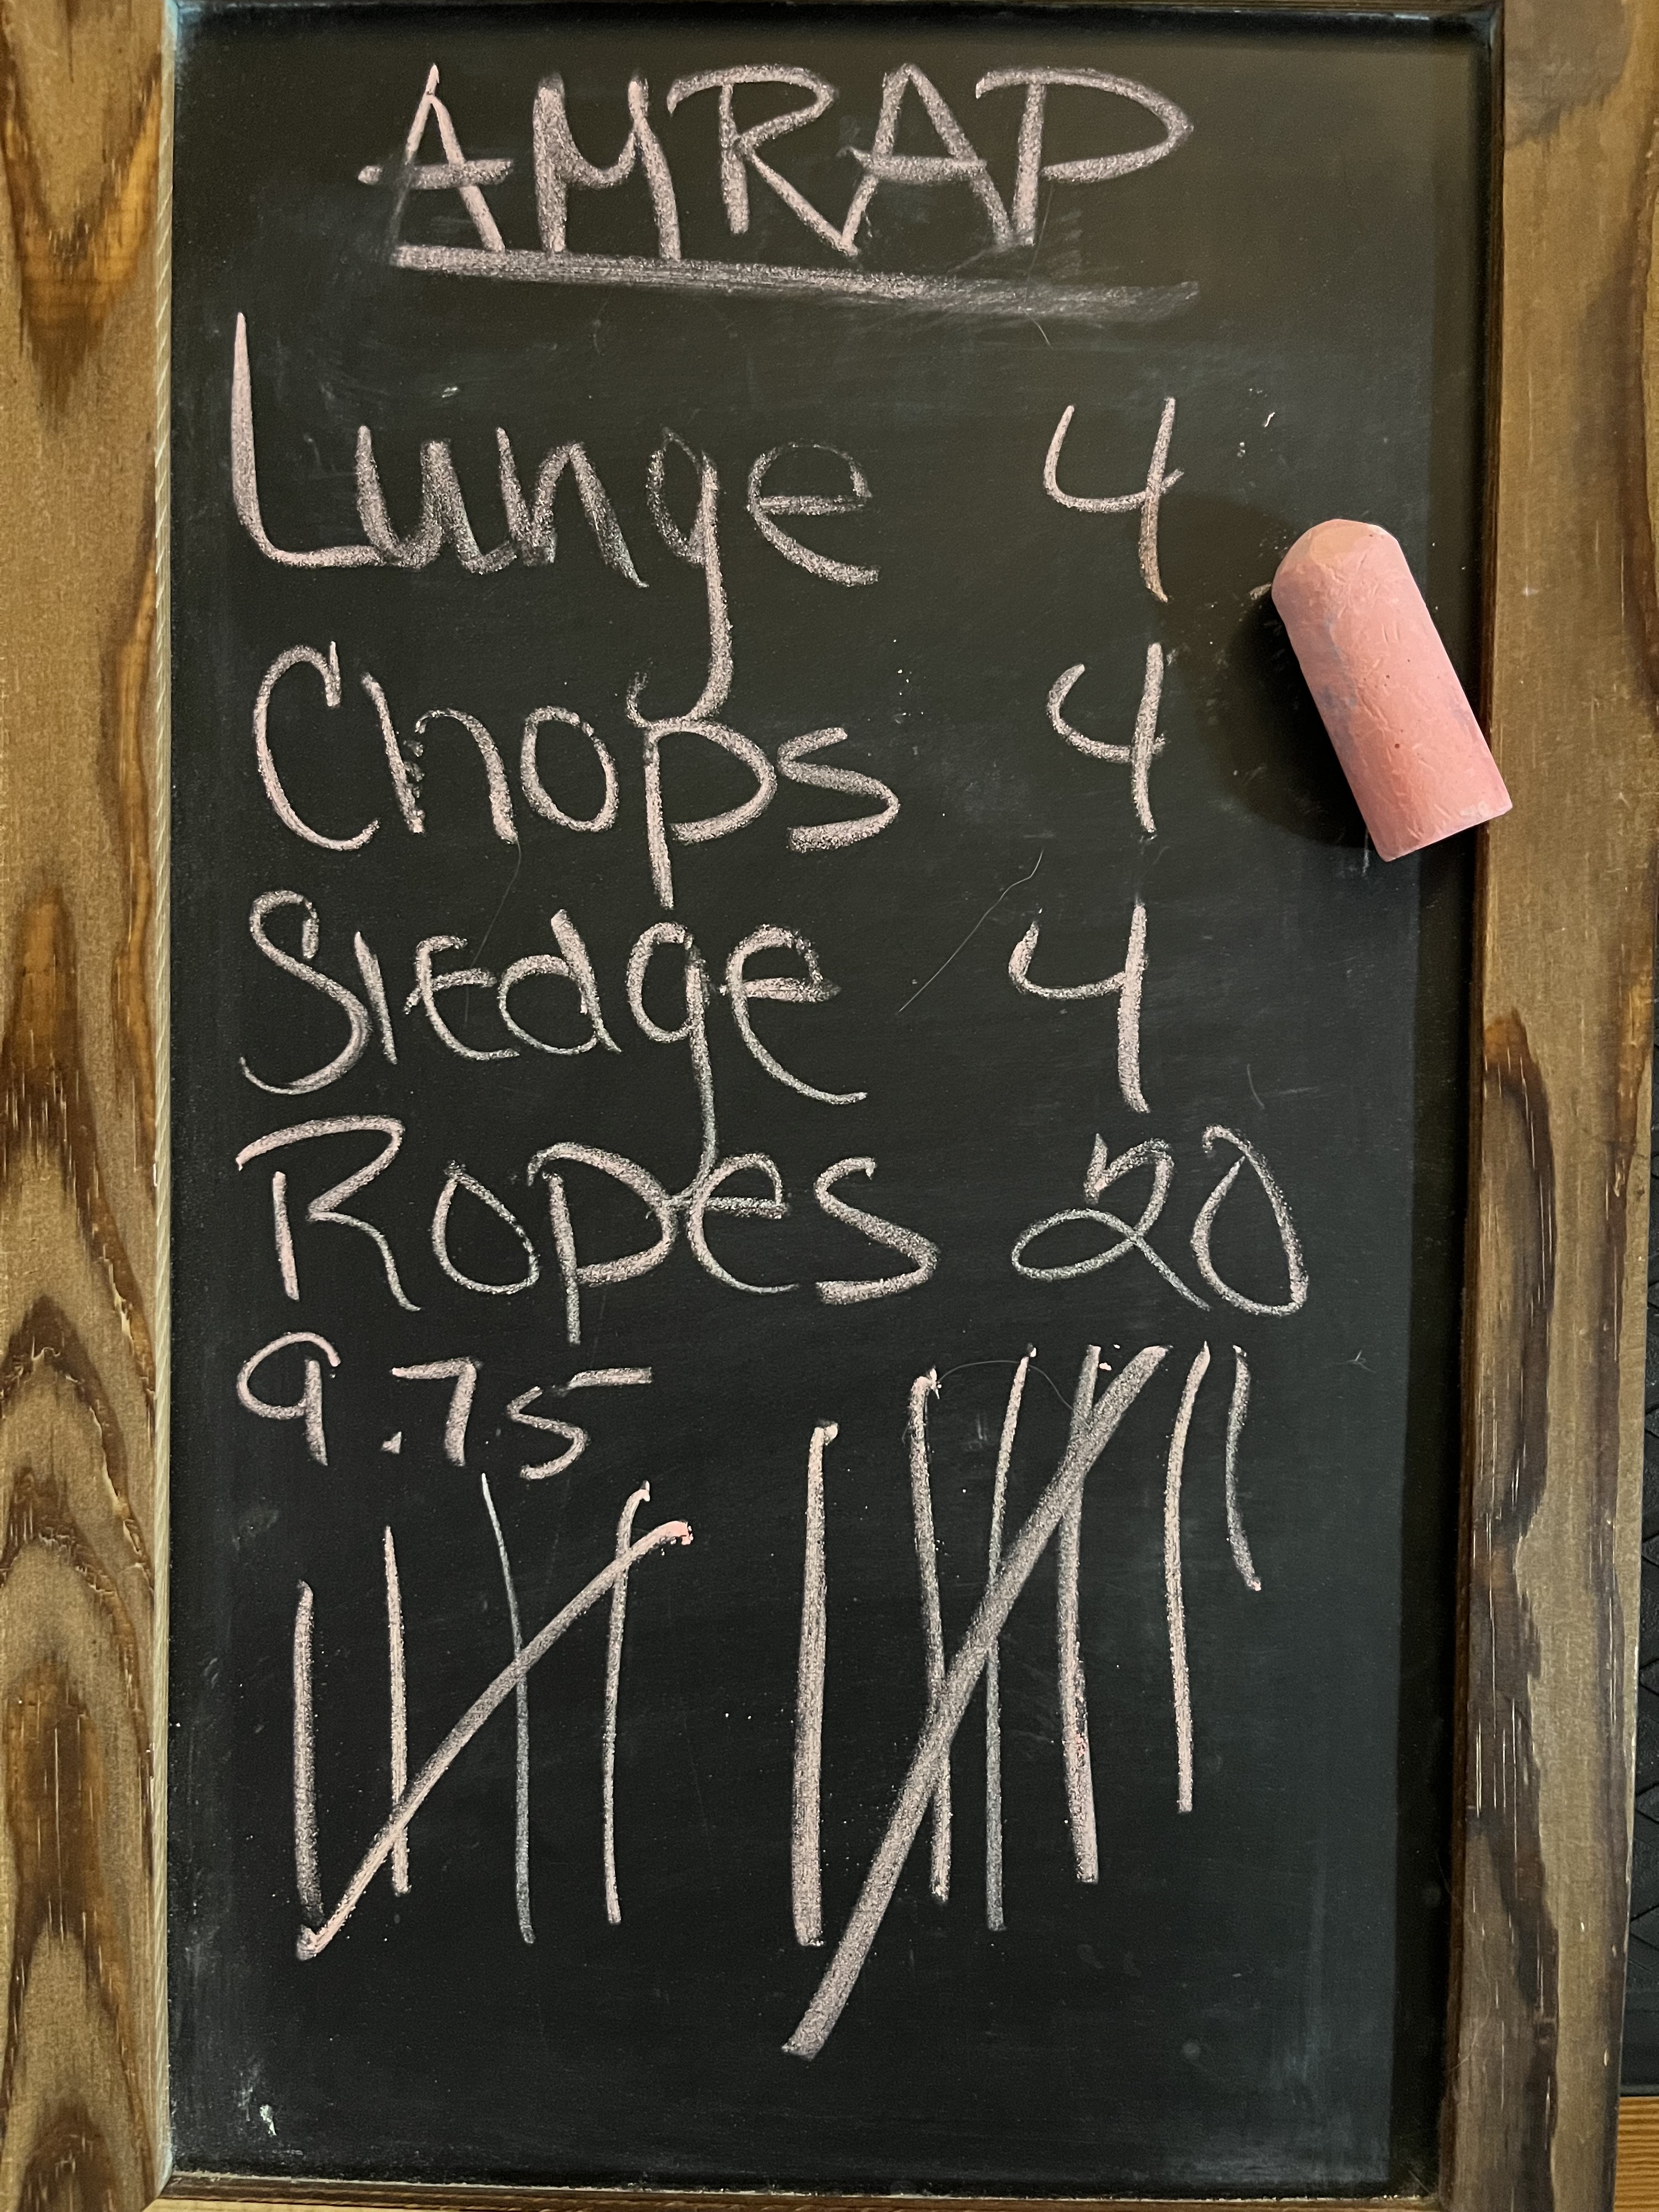 AMRAP
Lunge 4
Chops 4
Sledge 4
Ropes 20
9.75